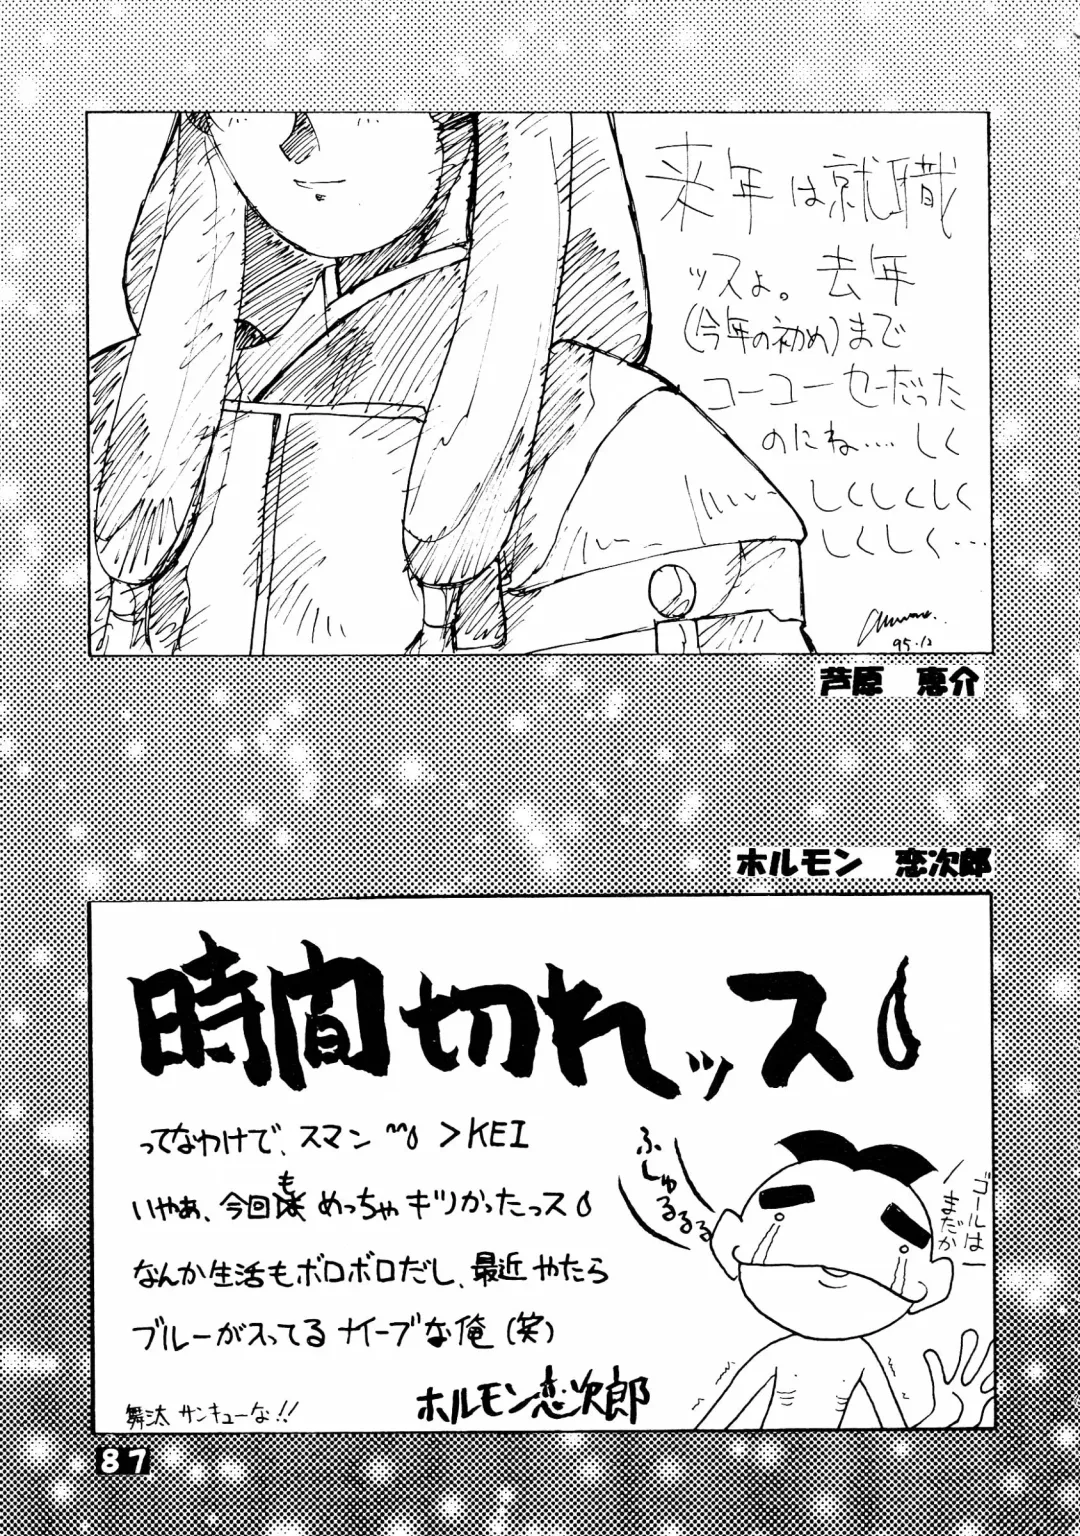 来年は就職
ッスよ。去年
(今年の初め)まで
コーユーセーだった
のにね….しく
しくしくしく
しくしく…
95.12
芦原 恵介
ホルモン 恋次郎
時間切れッス
ってなわけで、スマン >KEI
いやぁ、今回も めっちゃキツかったっス
なんか生活もボロボロだし、最近やたら
ブルーが入ってるナイーブな俺(笑)
ホルモン恋次郎
舞汰 サンキューな!!
ふしゅるるるる
ゴールは
まだかー
87